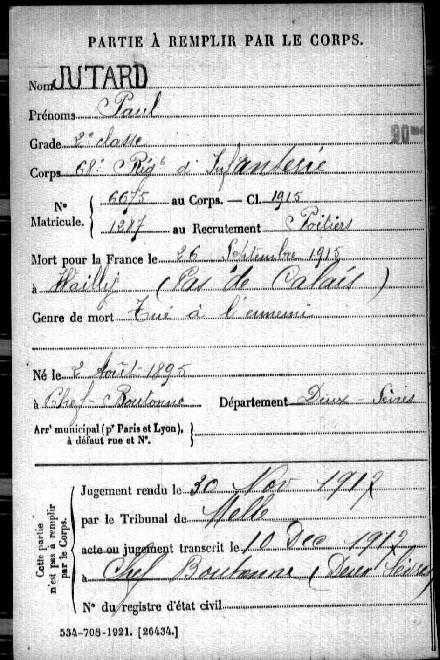 PARTIE À REMPLIR PAR LE CORPS.
Nom JUTARD
Prénoms Paul
20me
Grade 2e classe
Corps 68e Régt d'Infanterie
N° Matricule. { 6675 au Corps. — Cl. 1915
1287 au Recrutement Poitiers
Mort pour la France le 26 Septembre 1915
à Wailly (Pas de Calais)
Genre de mort Tué à l'ennemi
Né le 2 Août 1895
à Chef-Boutonne Département Deux-Sèvres
Arrt municipal (pr Paris et Lyon), à défaut rue et N°. }
Cette partie n'est pas à remplir par le Corps.
Jugement rendu le 30 Nov 1917
par le Tribunal de Melle
acte ou jugement transcrit le 10 Dec 1917
à Chef Boutonne (Deux Sèvres)
N° du registre d'état civil
534-708-1921. [26434.]